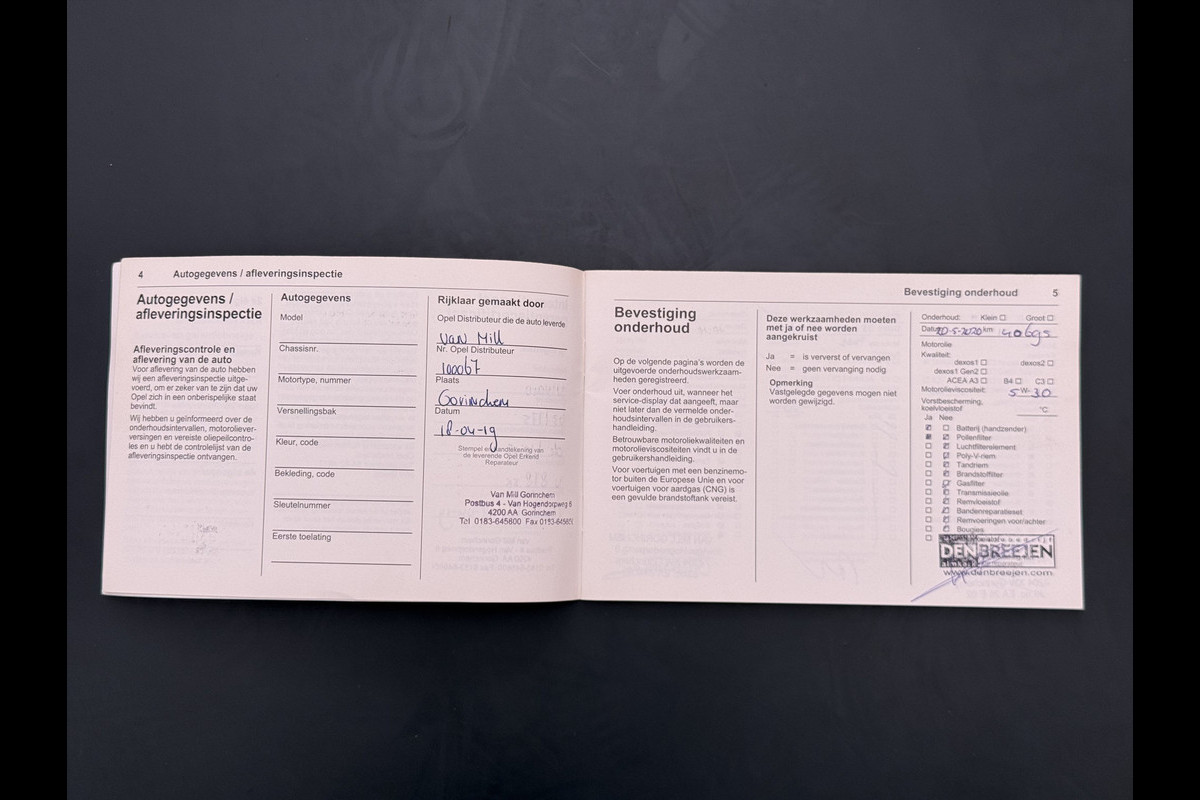 4 Autogegevens / afleveringsinspectie
Autogegevens /
afleveringsinspectie
Afleveringscontrole en
aflevering van de auto
Voor aflevering van de auto hebben
wij een afleveringsinspectie uitge-
voerd, om er zeker van te zijn dat uw
Opel zich in een onberispelijke staat
bevindt.
Wij hebben u geïnformeerd over de
onderhoudsintervallen, motoroliever-
versingen en vereiste oliepeilcontro-
les en u hebt de controlelijst van de
afleveringsinspectie ontvangen.
Autogegevens
Model
Chassisnr.
Motortype, nummer
Versnellingsbak
Kleur, code
Bekleding, code
Sleutelnummer
Eerste toelating
Rijklaar gemaakt door
Opel Distributeur die de auto leverde
Van Mill
Nr. Opel Distributeur
100067
Plaats
Gorinchem
Datum
18-04-19
Stempel en handtekening van
de leverende Opel Erkend
Reparateur
Van Mill Gorinchem
Postbus 4 - Van Hogendorpweg 8
4200 AA Gorinchem
Tel 0183-645600 Fax 0183-64565
Bevestiging onderhoud 5
Bevestiging
onderhoud
Op de volgende pagina's worden de
uitgevoerde onderhoudswerkzaam-
heden geregistreerd.
Voer onderhoud uit, wanneer het
service-display dat aangeeft, maar
niet later dan de vermelde onder-
houdsintervallen in de gebruikers-
handleiding.
Betrouwbare motoroliekwaliteiten en
motorolieviscositeiten vindt u in de
gebruikershandleiding.
Voor voertuigen met een benzinemo-
tor buiten de Europese Unie en voor
voertuigen voor aardgas (CNG) is
een gevulde brandstoftank vereist.
Deze werkzaamheden moeten
met ja of nee worden
aangekruist
Ja = is ververst of vervangen
Nee = geen vervanging nodig
Opmerking
Vastgelegde gegevens mogen niet
worden gewijzigd.
Onderhoud: Klein Groot
Datum 20-5-2020 km 40695
Motorolie
Kwaliteit:
dexos1 dexos2
dexos1 Gen2
ACEA A3 B4 C3
Motorolieviscositeit: 5 W- 30
Vorstbescherming,
koelvloeistof °C
Ja Nee
Batterij (handzender)
Pollenfilter
Luchtfilterelement
Poly-V-riem
Tandriem
Brandstoffilter
Gasfilter
Transmissieolie
Remvloeistof
Bandenreparatieset
Remvoeringen voor/achter
Bougies
DENBREEJEN
www.denbreejen.com